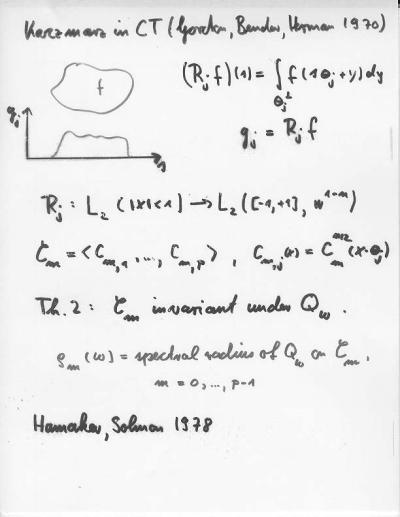 Kaczmarz in CT (Gordon, Bender, Herman 1970)
f
g_j
s
(R_j f)(s) = ∫_{θ_j^⊥} f(sθ_j + y) dy
g_j = R_j f
R_j : L_2 (|x|<1) → L_2 ([-1,+1], w^{1-n})
C_m = <C_{m,1}, ..., C_{m,p}> , C_{m,j}(x) = C_m^{n/2} (x·θ_j)
Th. 2 : C_m invariant under Q_ω .
ρ_m (ω) = spectral radius of Q_ω on C_m ,
m = 0, ..., p-1
Hamaker, Solmon 1978